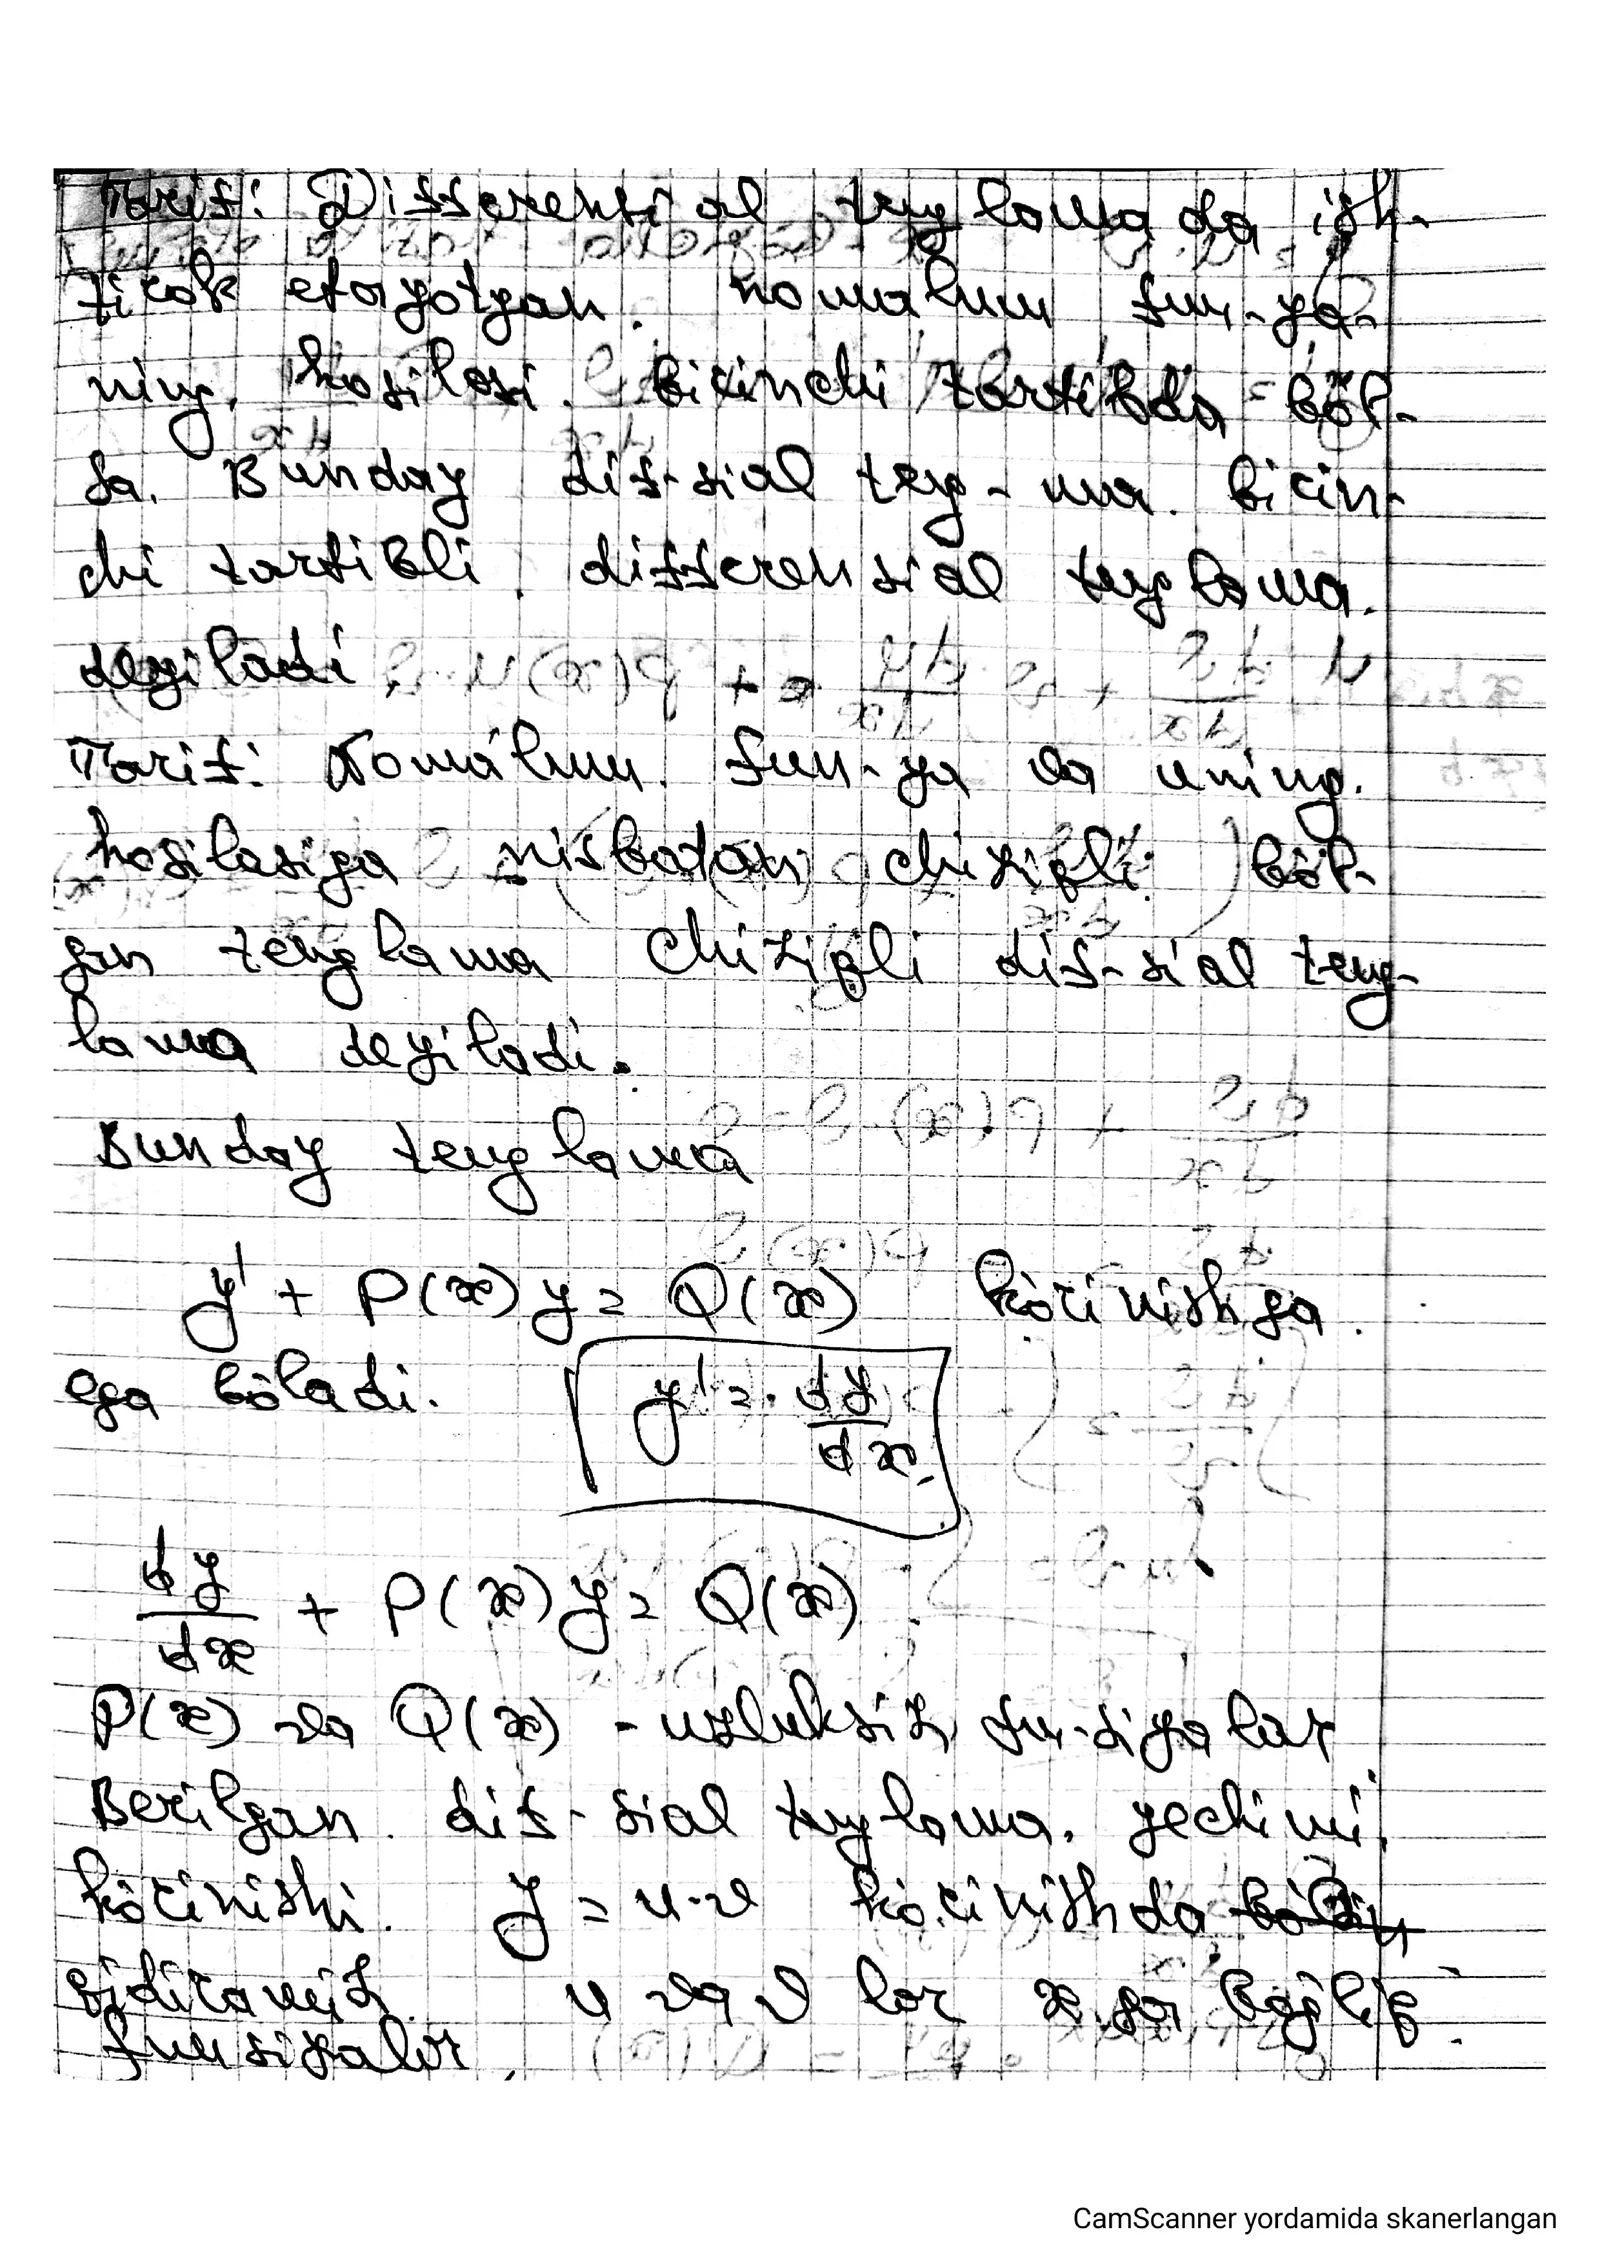 Tarif: Differensial tenglamada ish-
tirok etayotgan. nomalum fun-ya-
ning, hosilasi. birinchi tartibda bo'l-
sa. Bunday dif-sial teng-ma. birin-
chi tartibli. differensial tenglama.
deyiladi.
Tarif: Noma'lum. fun-ya va uning.
hosilasiga nisbatan chiziqli bo'l-
gan tenglama chiziqli dif-sial teng-
lama deyiladi.
Bunday tenglama
y' + P(x) y = Q(x) ko'rinishga.
ega bo'ladi. y' = dy/dx
dy/dx + P(x) y = Q(x)
P(x) va Q(x) - uzluksiz fu-siyalar
Berilgan. dif-sial tenglama. yechimi.
ko'rinishi. y = u·v ko'rinishda
qidiramiz u va v lar x ga bog'liq
funksiyalar.
CamScanner yordamida skanerlangan